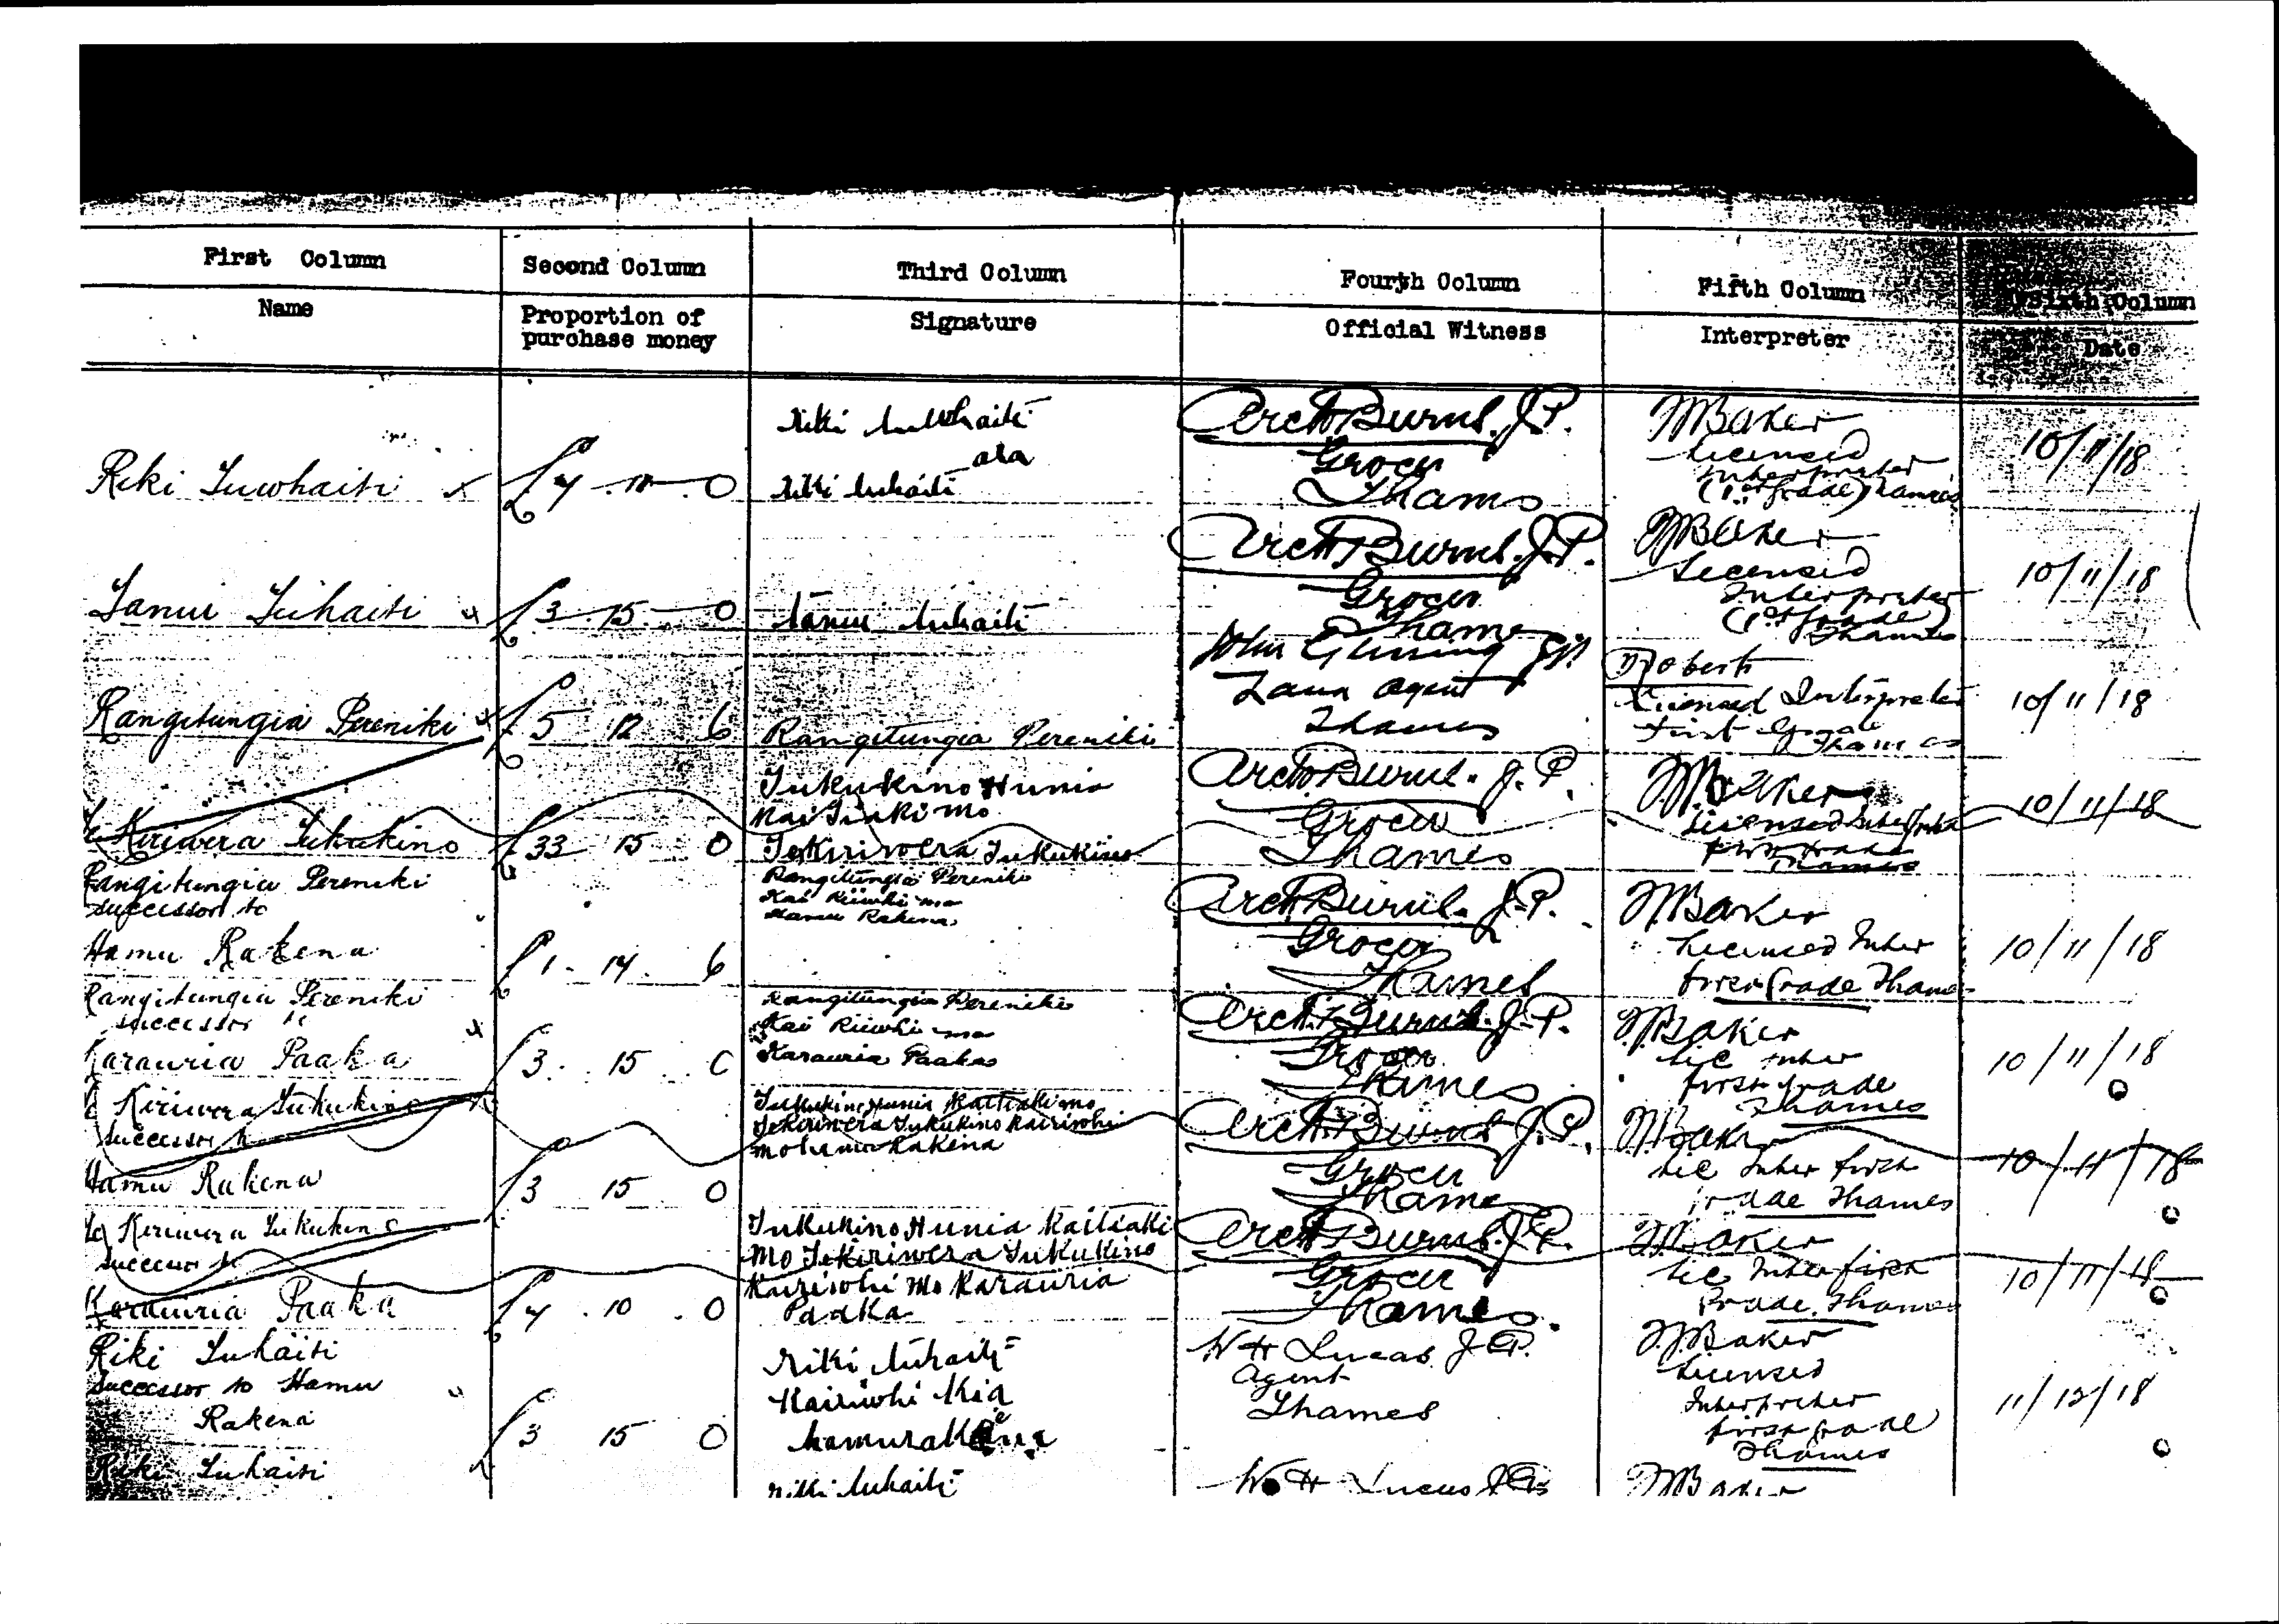 First Column
Second Column
Third Column
Fourth Column
Fifth Column
Sixth Column
Name
Proportion of
purchase money
Signature
Official Witness
Interpreter
Date
Riki Tuwhaiti
£
0
Riki Tuwhaiti
ata
Riki tuhaiti
Arch Burns. J.P.
Grocer
Thames
M Baker
Licensed
Interpreter
(1st Grade) Thames
10/11/18
Tanui Tuhaiti
£3 15 0
tanui tuhaiti
Arch Burns. J.P.
Grocer
Thames
M Baker
Licensed
Interpreter
(1st Grade)
Thames
10/11/18
Rangitungia Pereniki
£5 12 6
Rangitungia Pereniki
John J.P.
Land Agent
Thames
Roberts
Licensed Interpreter
First Grade
Thames
10/11/18
Te Kiriwera Tukukino
£33 15 0
Tukukino Hunia
Kai Tiaki mo
Te Kiriwera Tukukino
Arch Burns. J.P.
Grocer
Thames
Baker
Licensed
Thames
10/11/18
Rangitungia Pereniki
successor to
Hamu Rakena
£1 . 14 . 6
Rangitungia Pereniki
Kai Riiwhi mo
Hamu Rakena
Arch Burns. J.P.
Grocer
Thames
M Baker
Licensed Inter
First Grade Thames
10/11/18
Rangitungia Pereniki
successor to
Karauria Paaka
£3 . 15 . 0
Rangitungia Pereniki
Kai Riiwhi mo
Karauria Paaka
Arch Burns. J.P.
Grocer
Thames
M Baker
Lic Inter
first grade
Thames
10/11/18
Te Kiriwera Tukukino
successor to
Hamu Rakena
£3 15 0
Tukukino Hunia Kaitiaki mo
Te Kiriwera Tukukino Kairiwhi
mo hamu Rakena
Arch Burns J.P.
Grocer
Thames
M Baker
Lic Inter first
grade Thames
10/11/18
Te Kiriwera Tukukino
successor to
Karauria Paaka
£4 . 10 . 0
Tukukino Hunia Kaitiaki
Mo Te Kiriwera Tukukino
Kairiwhi Mo Karauria
Paaka
Arch Burns. J.P.
Grocer
Thames.
M Baker
Lic Inter first
Grade. Thames
10/11/18
Riki Tuhaiti
successor to Hamu
Rakena
£3 15 0
Riki tuhaiti
Kairiwhi Kia
hamu rakena
W H Lucas J.P.
Agent
Thames
M Baker
Licensed
Interpreter
first grade
Thames
11/12/18
Riki Tuhaiti
riki tuhaiti
W H Lucas J.P.
M Baker